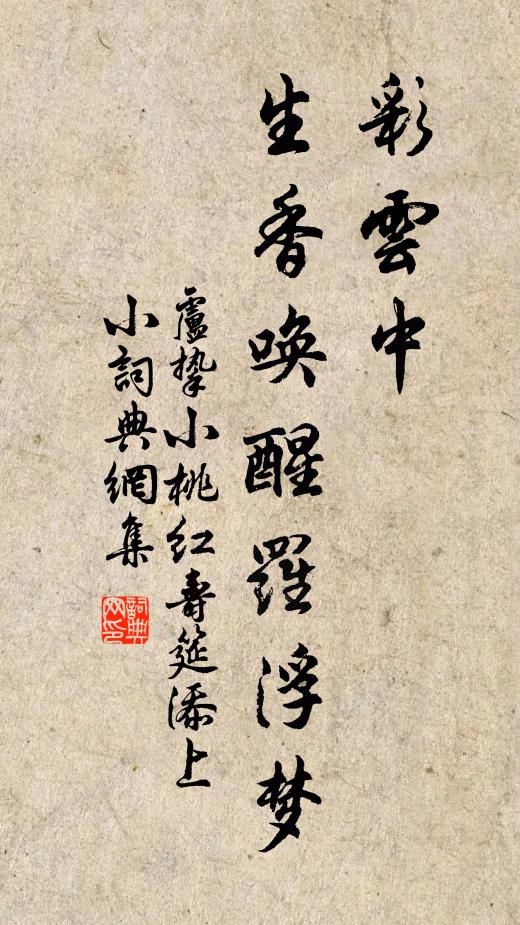 彩雲中
生香喚醒羅浮梦
盧摯小桃红壽筵添上
小詞典網集
詞典網印